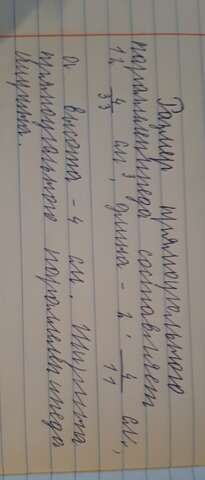 Размер прямоугольного
параллелепипеда составляет
12 4/33 см³, длина - 2 · 4/11 см,
а высота - 4 см. Ширина
прямоугольного параллелепипеда
ищуноа.